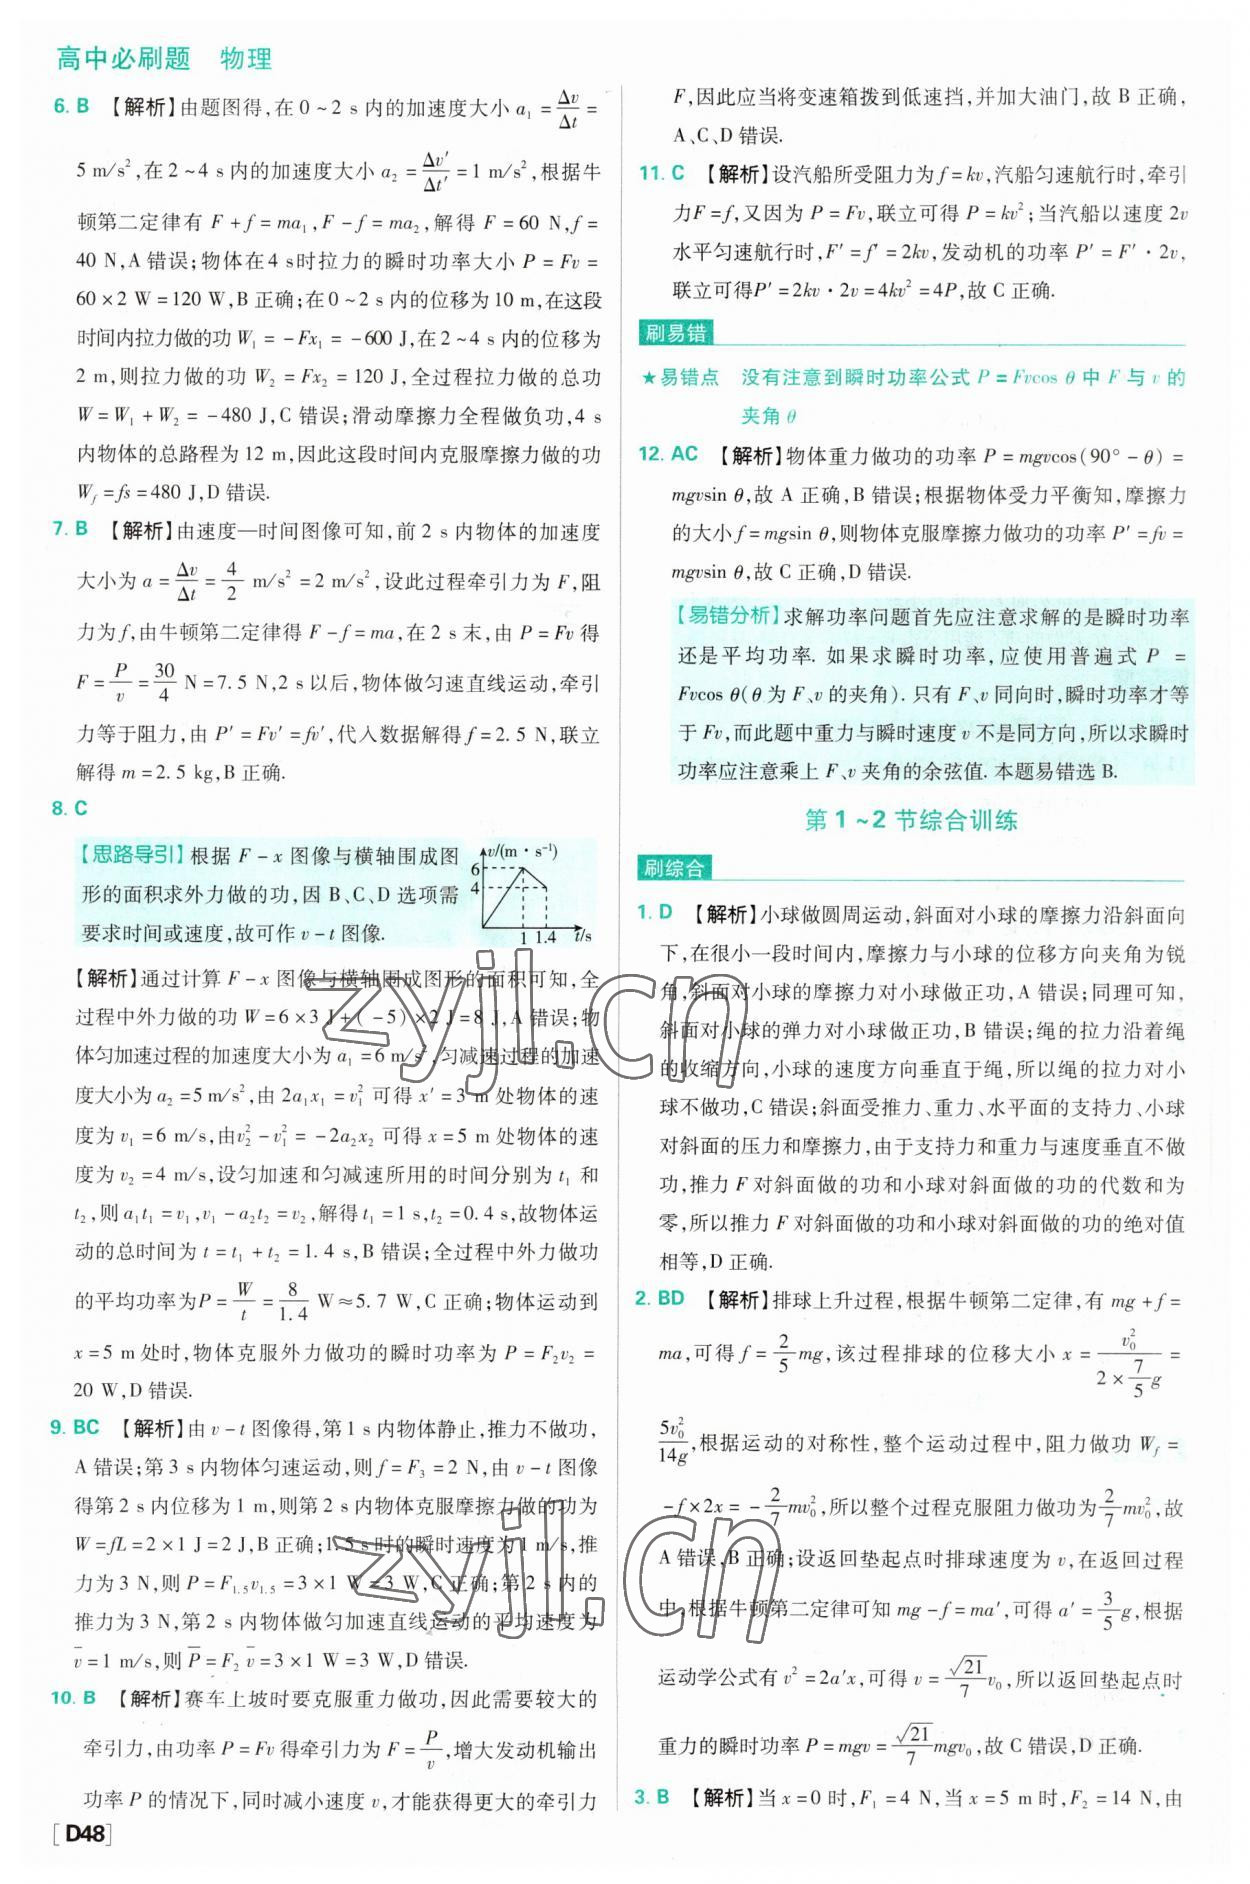 高中必刷题 物理
6. B 【解析】由题图得,在 0 ~ 2 s 内的加速度大小 a₁ = Δv/Δt =
5 m/s²,在 2 ~ 4 s 内的加速度大小 a₂ = Δv′/Δt′ = 1 m/s²,根据牛
顿第二定律有 F + f = ma₁,F - f = ma₂,解得 F = 60 N,f =
40 N,A 错误;物体在 4 s时拉力的瞬时功率大小 P = Fv =
60 × 2 W = 120 W,B 正确;在 0 ~ 2 s 内的位移为 10 m,在这段
时间内拉力做的功 W₁ = - Fx₁ = - 600 J,在 2 ~ 4 s 内的位移为
2 m,则拉力做的功 W₂ = Fx₂ = 120 J,全过程拉力做的总功
W = W₁ + W₂ = - 480 J,C 错误;滑动摩擦力全程做负功,4 s
内物体的总路程为 12 m,因此这段时间内克服摩擦力做的功
W_f = fs = 480 J,D 错误.
7. B 【解析】由速度—时间图像可知,前 2 s 内物体的加速度
大小为 a = Δv/Δt = 4/2 m/s² = 2 m/s²,设此过程牵引力为 F,阻
力为 f,由牛顿第二定律得 F - f = ma,在 2 s 末,由 P = Fv 得
F = P/v = 30/4 N = 7. 5 N,2 s 以后,物体做匀速直线运动,牵引
力等于阻力,由 P′ = Fv′ = fv′,代入数据解得 f = 2. 5 N,联立
解得 m = 2. 5 kg,B 正确.
8. C
【思路导引】根据 F - x 图像与横轴围成图
形的面积求外力做的功,因 B、C、D 选项需
要求时间或速度,故可作 v - t 图像.
v/(m · s⁻¹)
6
4
1 1.4 t/s
【解析】通过计算 F - x 图像与横轴围成图形的面积可知,全
过程中外力做的功 W = 6 × 3 J + ( - 5) × 2 J = 8 J,A 错误;物
体匀加速过程的加速度大小为 a₁ = 6 m/s²,匀减速过程的加速
度大小为 a₂ = 5 m/s²,由 2a₁x₁ = v₁² 可得 x′ = 3 m 处物体的速
度为 v₁ = 6 m/s,由v₂² - v₁² = - 2a₂x₂ 可得 x = 5 m 处物体的速
度为 v₂ = 4 m/s,设匀加速和匀减速所用的时间分别为 t₁ 和
t₂,则 a₁t₁ = v₁,v₁ - a₂t₂ = v₂,解得 t₁ = 1 s,t₂ = 0. 4 s,故物体运
动的总时间为 t = t₁ + t₂ = 1. 4 s,B 错误;全过程中外力做功
的平均功率为P = W/t = 8/1.4 W ≈ 5. 7 W,C 正确;物体运动到
x = 5 m 处时,物体克服外力做功的瞬时功率为 P = F₂v₂ =
20 W,D 错误.
9. BC 【解析】由 v - t 图像得,第 1 s 内物体静止,推力不做功,
A 错误;第 3 s 内物体匀速运动,则 f = F₃ = 2 N,由 v - t 图像
得第 2 s 内位移为 1 m,则第 2 s 内物体克服摩擦力做的功为
W = fL = 2 × 1 J = 2 J,B 正确;1. 5 s 时的瞬时速度为 1 m/s,推
力为 3 N,则 P = F₁.₅v₁.₅ = 3 × 1 W = 3 W,C 正确;第 2 s 内的
推力为 3 N,第 2 s 内物体做匀加速直线运动的平均速度为
v̄ = 1 m/s,则 P̄ = F₂ v̄ = 3 × 1 W = 3 W,D 错误.
10. B 【解析】赛车上坡时要克服重力做功,因此需要较大的
牵引力,由功率 P = Fv 得牵引力为 F = P/v,增大发动机输出
功率 P 的情况下,同时减小速度 v,才能获得更大的牵引力
[D48]
F,因此应当将变速箱拨到低速挡,并加大油门,故 B 正确,
A、C、D 错误.
11. C 【解析】设汽船所受阻力为 f = kv,汽船匀速航行时,牵引
力F = f,又因为 P = Fv,联立可得 P = kv²;当汽船以速度 2v
水平匀速航行时,F′ = f′ = 2kv,发动机的功率 P′ = F′ · 2v,
联立可得P′ = 2kv · 2v = 4kv² = 4P,故 C 正确.
刷易错
★易错点 没有注意到瞬时功率公式 P = Fvcos θ 中 F 与 v 的
夹角 θ
12. AC 【解析】物体重力做功的功率 P = mgvcos(90° - θ) =
mgvsin θ,故 A 正确,B 错误;根据物体受力平衡知,摩擦力
的大小 f = mgsin θ,则物体克服摩擦力做功的功率 P′ = fv =
mgvsin θ,故 C 正确,D 错误.
【易错分析】求解功率问题首先应注意求解的是瞬时功率
还是平均功率. 如果求瞬时功率,应使用普遍式 P =
Fvcos θ(θ 为 F、v 的夹角). 只有 F、v 同向时,瞬时功率才等
于 Fv,而此题中重力与瞬时速度 v 不是同方向,所以求瞬时
功率应注意乘上 F、v 夹角的余弦值. 本题易错选 B.
第 1 ~ 2 节综合训练
刷综合
1. D 【解析】小球做圆周运动,斜面对小球的摩擦力沿斜面向
下,在很小一段时间内,摩擦力与小球的位移方向夹角为锐
角,斜面对小球的摩擦力对小球做正功,A 错误;同理可知,
斜面对小球的弹力对小球做正功,B 错误;绳的拉力沿着绳
的收缩方向,小球的速度方向垂直于绳,所以绳的拉力对小
球不做功,C 错误;斜面受推力、重力、水平面的支持力、小球
对斜面的压力和摩擦力,由于支持力和重力与速度垂直不做
功,推力 F 对斜面做的功和小球对斜面做的功的代数和为
零,所以推力 F 对斜面做的功和小球对斜面做的功的绝对值
相等,D 正确.
2. BD 【解析】排球上升过程,根据牛顿第二定律,有 mg + f =
ma,可得 f = 2/5 mg,该过程排球的位移大小 x = v₀²/(2 × 7/5 g) =
5v₀²/14g,根据运动的对称性,整个运动过程中,阻力做功 W_f =
-f × 2x = - 2/7 mv₀²,所以整个过程克服阻力做功为 2/7 mv₀²,故
A 错误,B 正确;设返回垫起点时排球速度为 v,在返回过程
中,根据牛顿第二定律可知 mg - f = ma′,可得 a′ = 3/5 g,根据
运动学公式有 v² = 2a′x,可得 v = √21/7 v₀,所以返回垫起点时
重力的瞬时功率 P = mgv = √21/7 mgv₀,故 C 错误,D 正确.
3. B 【解析】当 x = 0 时,F₁ = 4 N,当 x = 5 m 时,F₂ = 14 N,由
zyjl.cn
zyjl.cn